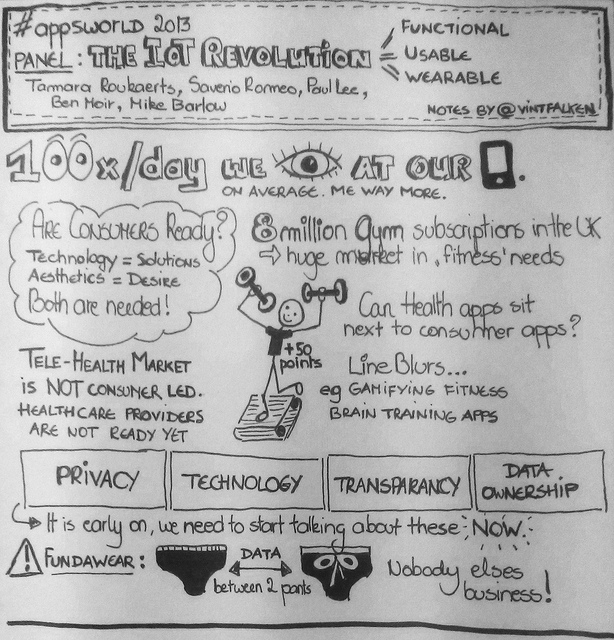 #appsworld 2013
PANEL: THE IoT REVOLUTION
FUNCTIONAL
USABLE
WEARABLE
Tamara Roukaerts, Saverio Romeo, Paul Lee,
Ben Moir, Mike Barlow
NOTES BY @VINTFALKEN
100x/day WE AT OUR .
ON AVERAGE. ME WAY MORE.
ARE CONSUMERS Ready?
Technology = Solutions
Aesthetics = Desire
Both are needed!
8 million Gym subscriptions in the UK
⇒ huge market in 'fitness' needs
+50
points
Can Health apps sit
next to consumer apps?
Line Blurs...
eg GAMIFYING FITNESS
BRAIN TRAINING APPS
TELE-HEALTH MARKET
is NOT CONSUMER LED.
HEALTHCARE PROVIDERS
ARE NOT READY YET
PRIVACY
TECHNOLOGY
TRANSPARANCY
DATA
OWNERSHIP
It is early on, we need to start talking about these NOW.
! FUNDAWEAR:
DATA
between 2 pants
Nobody elses
business!